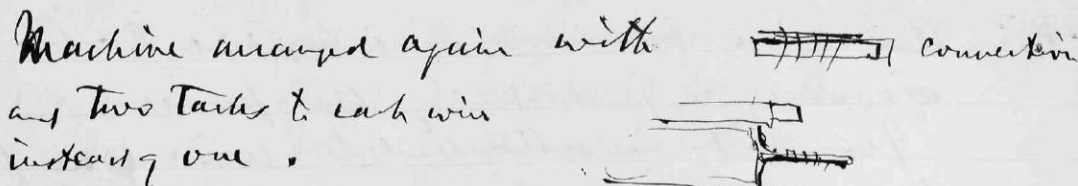 Machine arranged again with connection
and two tacks to each wire
instead of one.